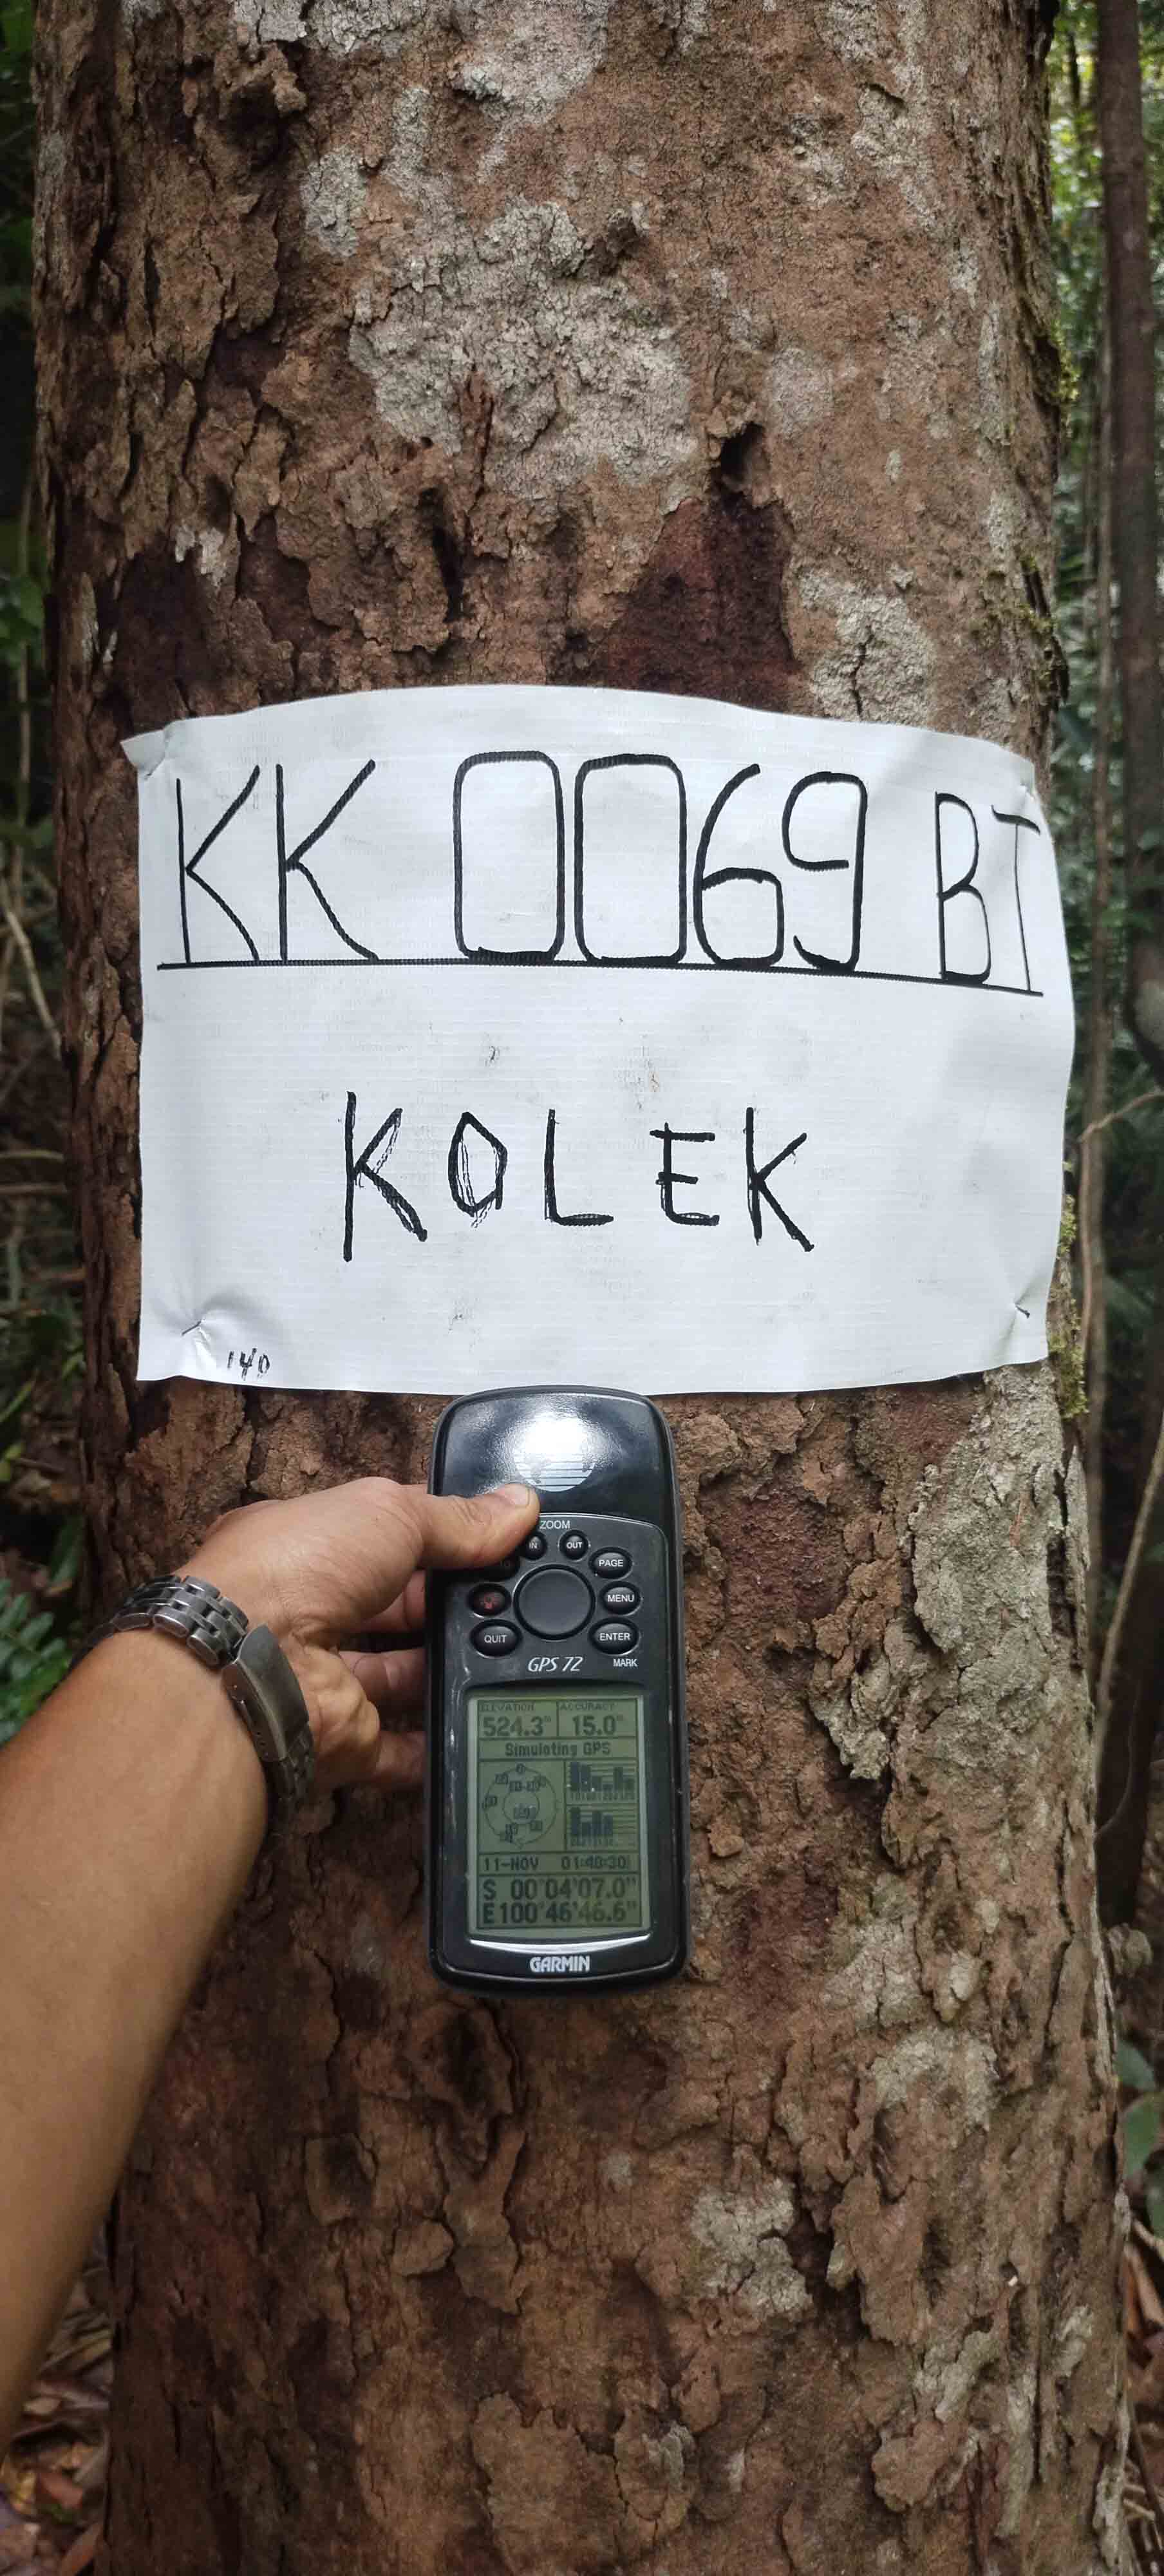 KK 0069 BT
KOLEK
140
ZOOM
IN OUT
PAGE
MENU
QUIT ENTER
GPS 72 MARK
ELEVATION ACCURACY
524.3m 15.0m
Simulating GPS
11-NOV 01:40:30
S 00°04'07.0"
E100°46'46.6"
GARMIN